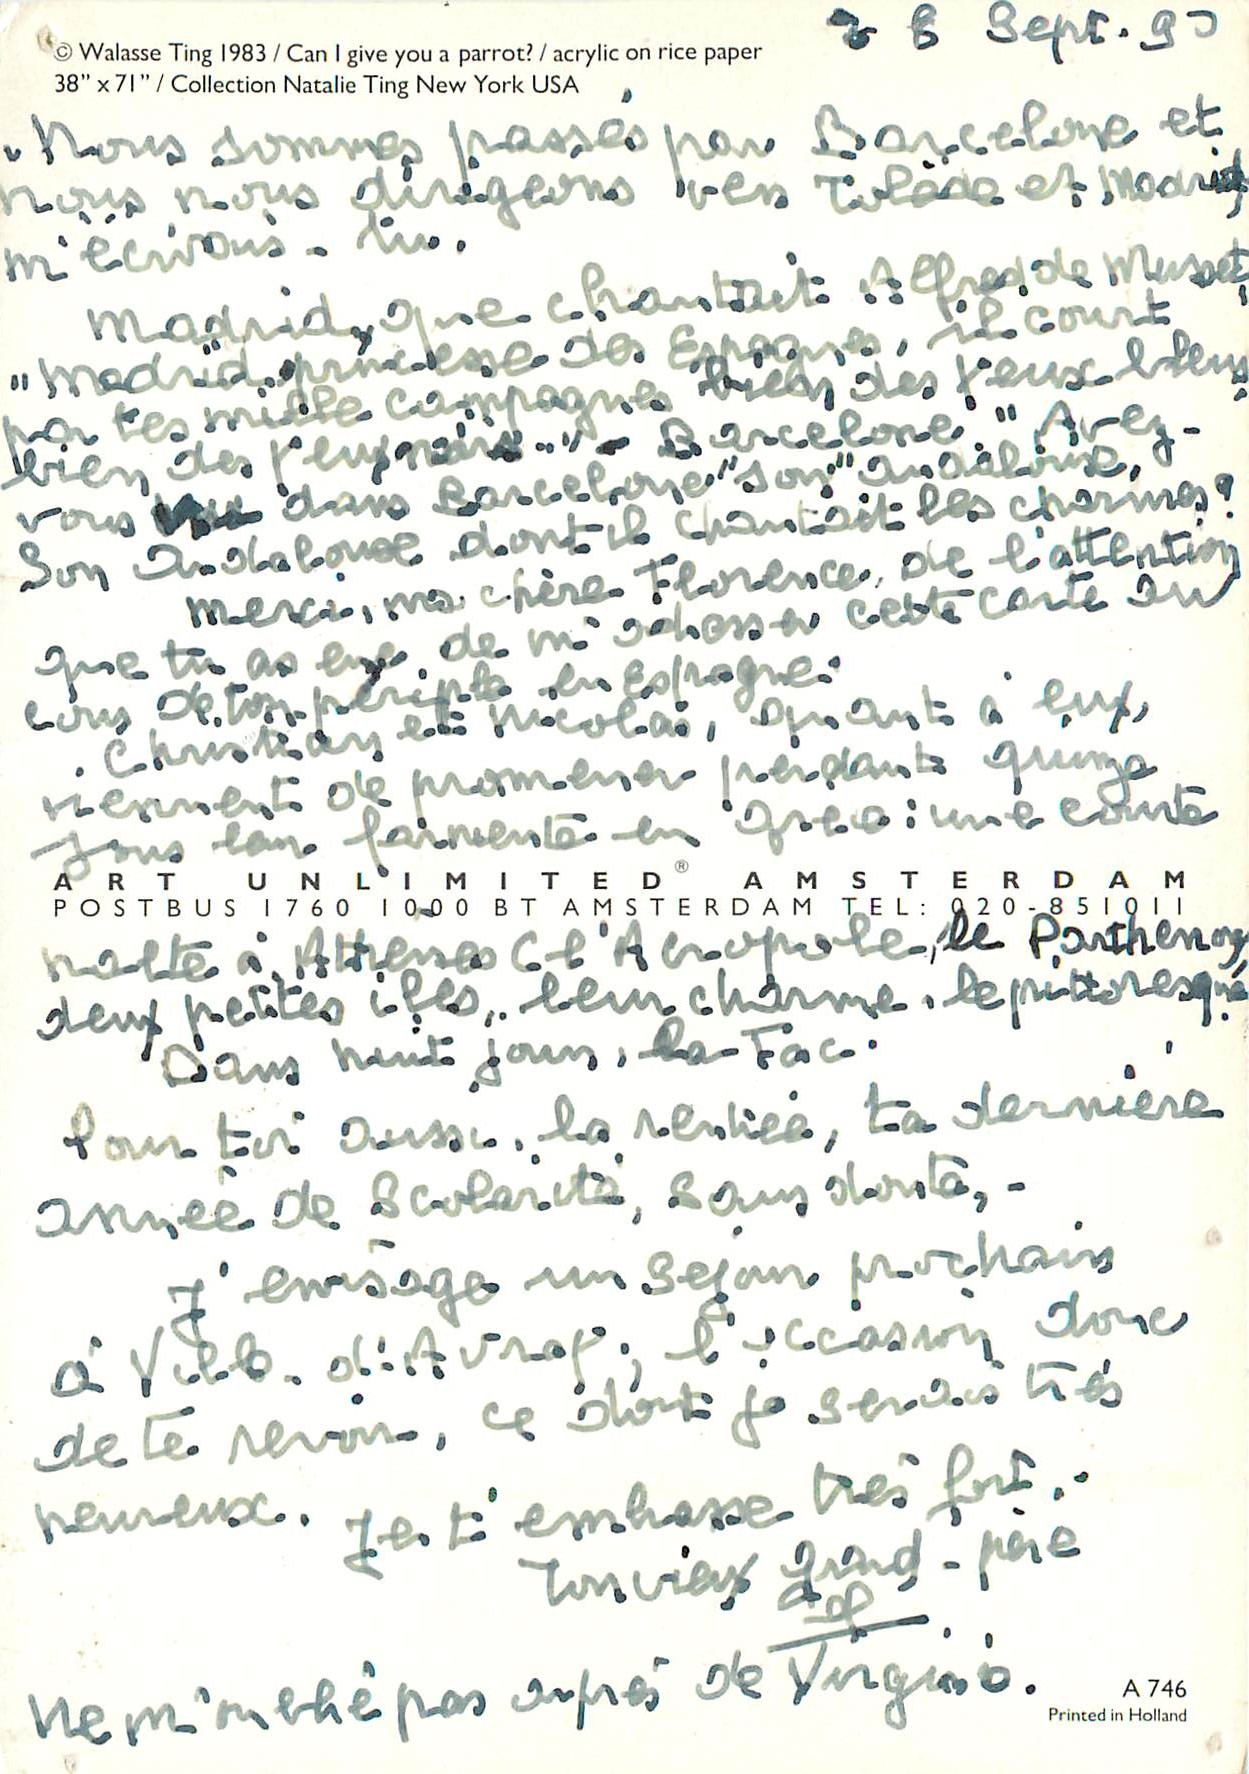 © Walasse Ting 1983 / Can I give you a parrot? / acrylic on rice paper
38" x 71" / Collection Natalie Ting New York USA
26 Sept. 90
"Nous sommes passés par Barcelone et
nous nous dirigeons vers Tolède et Madrid,
m'écrivais-tu.
Madrid, que chantait Alfred de Musset,
"Madrid, princesse des Espagnes, il court
par tes mille campagnes bien des yeux bleus,
bien des yeux noirs..." - Barcelone "Avez-
vous vu dans Barcelone" "son" andalouse,
Son Andalouse dont il chantait les charmes?
Merci, ma chère Florence, de l'attention
que tu as eue de m'adresser cette carte au
cours de ton périple en Espagne.
Christian et Nicolas, quant à eux,
viennent de promener pendant quinze
jours leur farniente en Grèce : une courte
ART UNLIMITED® AMSTERDAM
POSTBUS 1760 1000 BT AMSTERDAM TEL: 020-851011
halte à Athènes (l'Acropole, le Parthenon,
deux petites iles, leur charme, le pittoresque.
Dans huit jours, la Fac.
Pour toi aussi, la rentrée, ta dernière
année de Scolarité, sans doute, -
J'envisage un séjour prochain
à Ville-d'Avray, l'occasion donc
de te revoir, ce dont je serais très
heureux. Je t'embrasse très fort.
Ton vieux grand-père
Ne m'oublie pas auprès de Virginie.
A 746
Printed in Holland